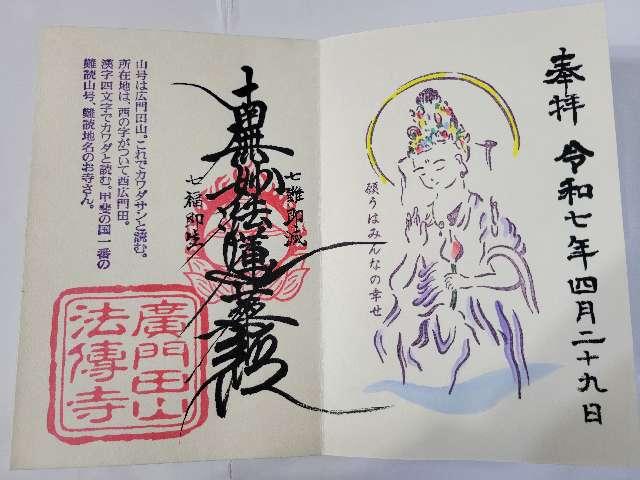 奉拝 令和七年四月二十九日
願うはみんなの幸せ
七難即滅
南無妙法蓮華経
七福即生
山号は広門田山。これでカワダサンと読む。
所在地は、西の字がついて西広門田。
漢字四文字でカワダと読む。甲斐の国一番の
難読山号、難読地名のお寺さん。
廣門田山
法傳寺